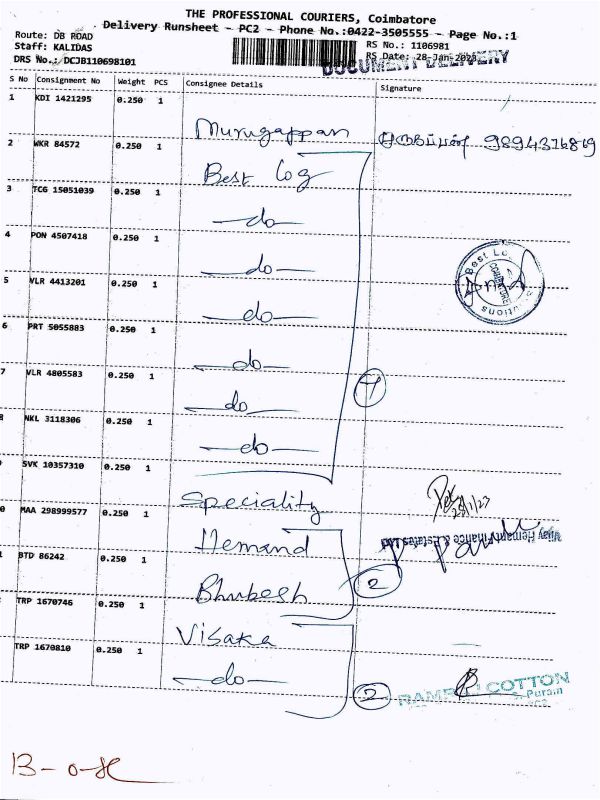 THE PROFESSIONAL COURIERS, Coimbatore
Delivery Runsheet - PC2 - Phone No.:0422-3505555 - Page No.:1
Route: DB ROAD
Staff: KALIDAS
DRS No.: DCJB110698101
RS No.: 1106981
RS Date: 28-Jan-2023
DOCUMENT DELIVERY
S No Consignment No Weight PCS Consignee Details Signature
1 KDI 1421295 0.250 1 Murugappan 9894316819
2 WKR 84572 0.250 1 Best Log
3 TCG 15051039 0.250 1 -do-
4 PON 4507418 0.250 1 -do-
5 VLR 4413201 0.250 1 -do-
6 PRT 5055883 0.250 1 -do-
7 VLR 4805583 0.250 1 -do-
8 NKL 3118306 0.250 1 -do-
7
Best Lo utions
COIMBATORE
SVK 10357310 0.250 1 Speciality
28/1/23
0 MAA 298999577 0.250 1 Hemand
Vijay Hemant Finance & Estates Ltd
BTD 86242 0.250 1 Bhubesh
2
TRP 1670746 0.250 1 Visaka
TRP 1670810 0.250 1 -do-
2
COTTON
Puram
13-0-